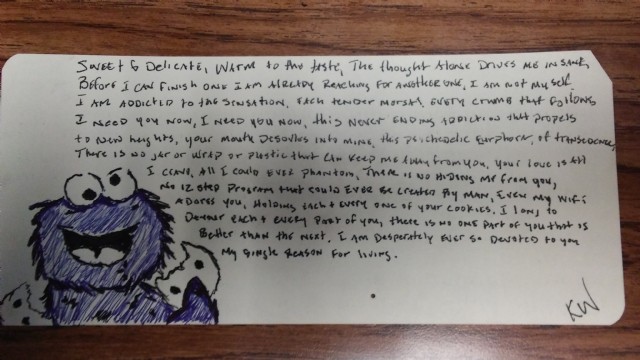 Sweet & Delicate, Warm to the taste, The thought Alone Drives me insane,
Before I can finish one I am Already Reaching for another one, I am not myself
I am addicted to the sensation, each tender morsel, every crumb that follows
I need you now, I need you now, this never ending addiction that propels
to new heights, your mouth desolves into mine, this psychedelic euphoria, of
There is no jar or wrap or plastic that can keep me away from you, your love is All
I crave, all I could ever phantom, There is no hiding me from you,
no 12 step program that could ever be created by man, even my wife
adores you, Holding each & every one of your cookies. I long to
Devour each & every part of you, there is no one part of you that is
Better than the next. I am desperately ever so devoted to you
My single reason for living.
KW